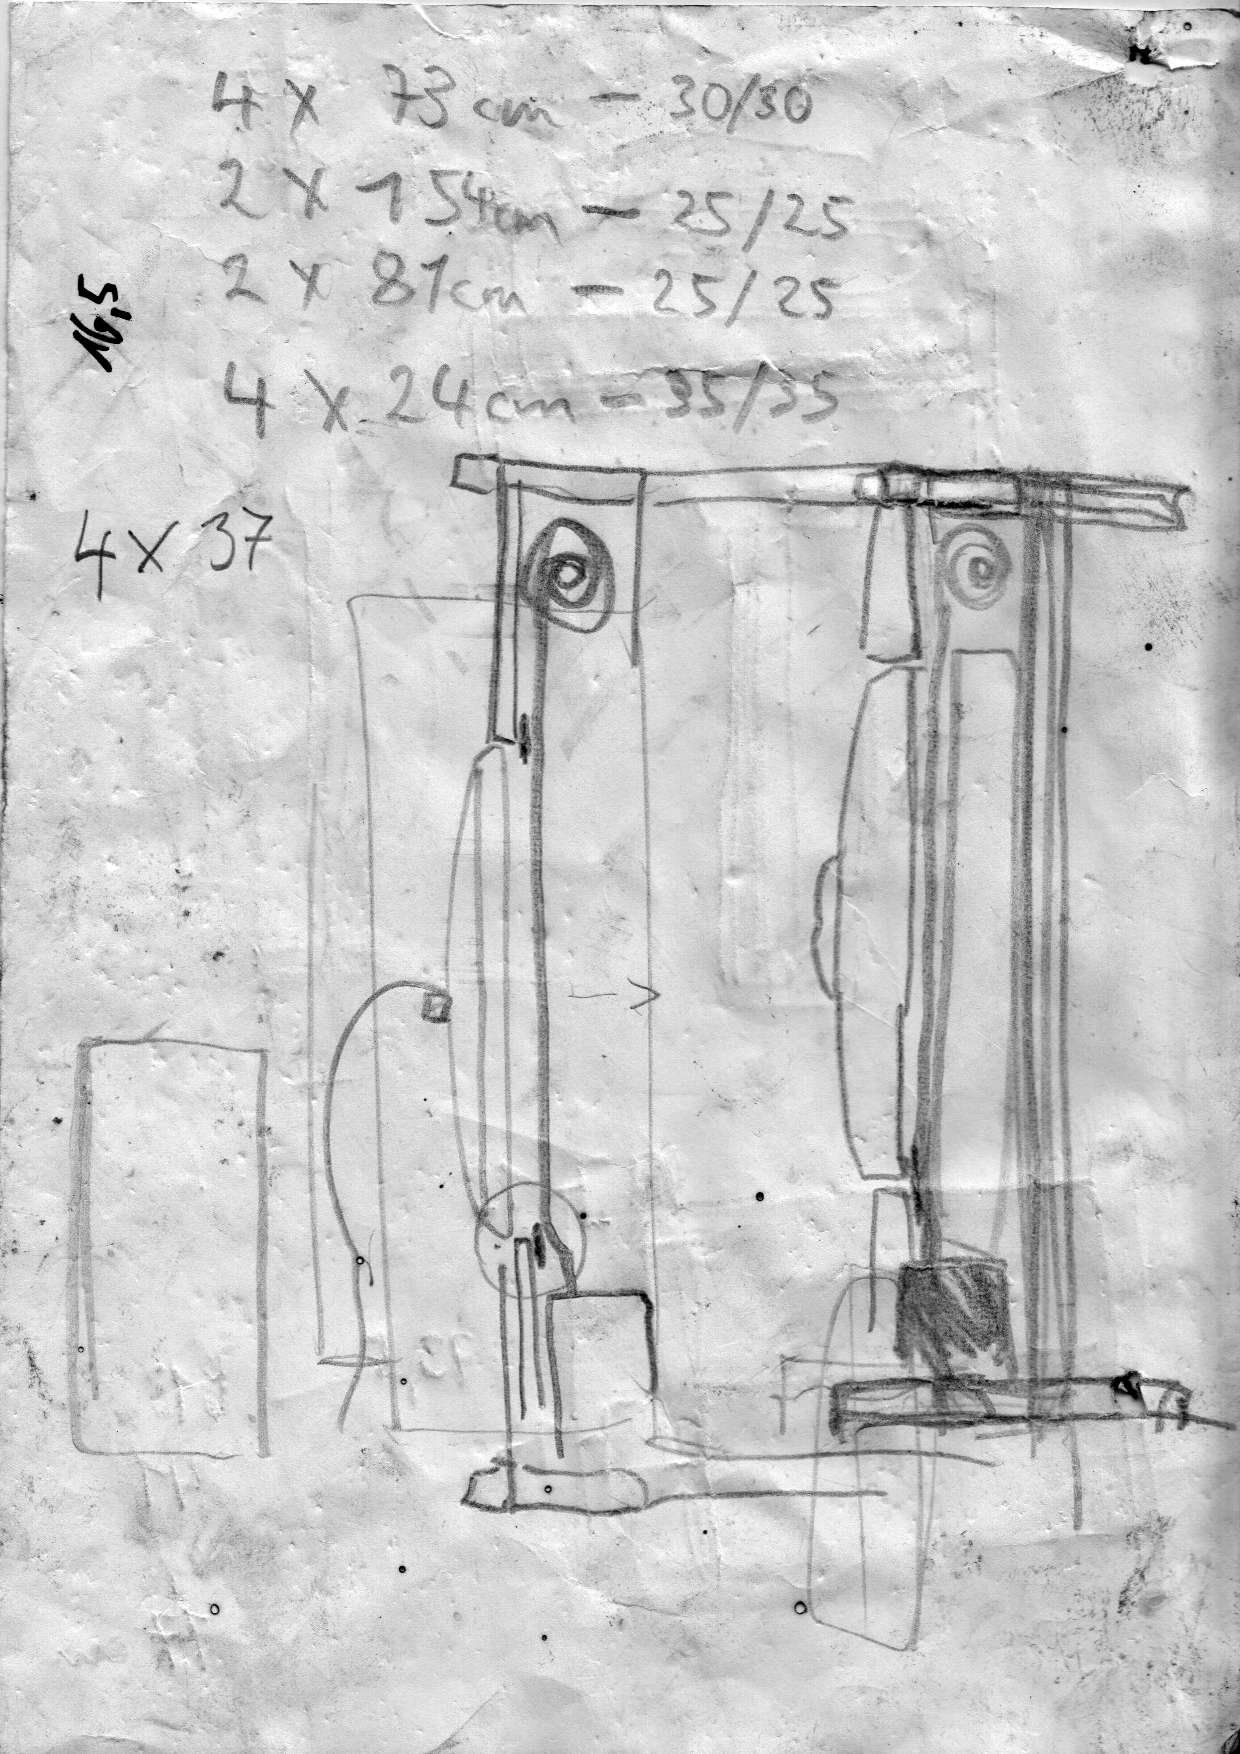 4 x 73 cm - 30/30
2 x 154cm - 25/25
2 x 81cm - 25/25
16,5
4 x 24cm - 35/35
4 x 37